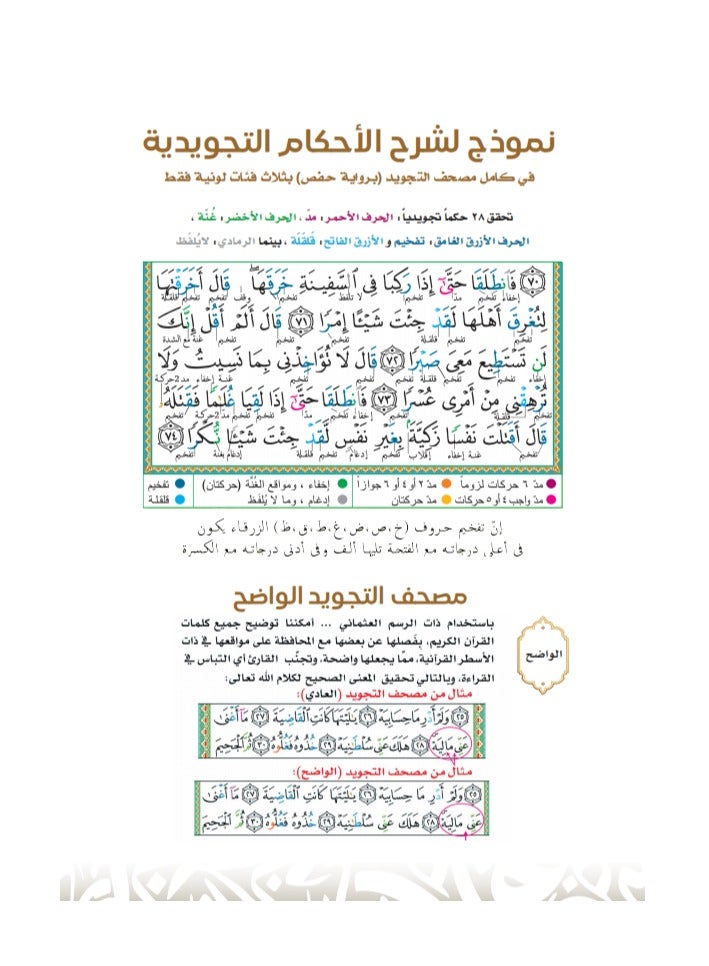 نموذج لشرح الأحكام التجويدية
في كامل مصحف التجويد (برواية حفص) بثلاث فئات لونية فقط
تحقق ٢٨ حكماً تجويدياً: الحرف الأحمر: مدّ ، الحرف الأخضر: غُنّة ،
الحرف الأزرق الغامق: تفخيم و الأزرق الفاتح: قَلقَلَة ، بينما الرمادي: لايُلفَظ
﴿٧٠﴾ فَٱنطَلَقَا حَتَّىٰٓ إِذَا رَكِبَا فِى ٱلسَّفِينَةِ خَرَقَهَا ۖ قَالَ أَخَرَقْتَهَا
لِتُغْرِقَ أَهْلَهَا لَقَدْ جِئْتَ شَيْـًٔا إِمْرًا ﴿٧١﴾ قَالَ أَلَمْ أَقُلْ إِنَّكَ
لَن تَسْتَطِيعَ مَعِىَ صَبْرًا ﴿٧٢﴾ قَالَ لَا تُؤَاخِذْنِى بِمَا نَسِيتُ وَلَا
تُرْهِقْنِى مِنْ أَمْرِى عُسْرًا ﴿٧٣﴾ فَٱنطَلَقَا حَتَّىٰٓ إِذَا لَقِيَا غُلَـٰمًا فَقَتَلَهُۥ
قَالَ أَقَتَلْتَ نَفْسًا زَكِيَّةًۢ بِغَيْرِ نَفْسٍ لَّقَدْ جِئْتَ شَيْـًٔا نُّكْرًا ﴿٧٤﴾
مدّ ٦ حركات لزوماً مدّ ٢ أو ٤ أو ٦ جوازاً إخفاء ، ومواقع الغُنَّة (حركتان) تفخيم
مدّ واجب ٤ أو ٥ حركات مدّ حركتان إدغام ، وما لا يُلفَظ قلقلة
إنّ تفخيم حروف (خ،ص،ض،غ،ط،ق،ظ) الزرقاء يكون
فى أعلى درجاته مع الفتحة تليها ألف وفى أدنى درجاته مع الكسرة
مصحف التجويد الواضح
الواضح
باستخدام ذات الرسم العثماني ... أمكننا توضيح جميع كلمات
القرآن الكريم، بفَصلها عن بعضها مع المحافظة على مواقعها في ذات
الأسطر القرآنية، ممّا يجعلها واضحة، وتجنّب القارئ أي التباس في
القراءة، وبالتالي تحقيق المعنى الصحيح لكلام الله تعالى:
مثال من مصحف التجويد (العادي):
﴿٢٥﴾ وَلَمْ أَدْرِ مَا حِسَابِيَهْ ﴿٢٦﴾ يَـٰلَيْتَهَا كَانَتِ ٱلْقَاضِيَةَ ﴿٢٧﴾ مَآ أَغْنَىٰ
عَنِّى مَالِيَهْ ﴿٢٨﴾ هَلَكَ عَنِّى سُلْطَـٰنِيَهْ ﴿٢٩﴾ خُذُوهُ فَغُلُّوهُ ﴿٣٠﴾ ثُمَّ ٱلْجَحِيمَ
مثال من مصحف التجويد (الواضح):
﴿٢٥﴾ وَلَمْ أَدْرِ مَا حِسَابِيَهْ ﴿٢٦﴾ يَـٰلَيْتَهَا كَانَتِ ٱلْقَاضِيَةَ ﴿٢٧﴾ مَآ أَغْنَىٰ
عَنِّى مَالِيَهْ ﴿٢٨﴾ هَلَكَ عَنِّى سُلْطَـٰنِيَهْ ﴿٢٩﴾ خُذُوهُ فَغُلُّوهُ ﴿٣٠﴾ ثُمَّ ٱلْجَحِيمَ